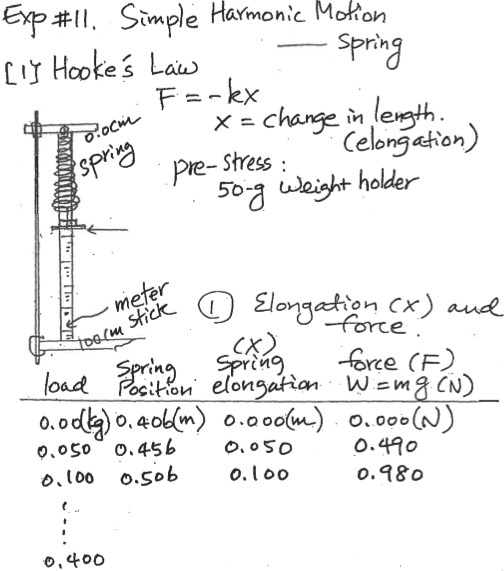 Exp #11. Simple Harmonic Motion
— Spring
[1] Hooke's Law
F = -kx
x = change in length.
(elongation)
0.0cm
spring
pre-stress :
50-g weight holder
meter
stick
100cm
① Elongation (x) and
force.
(x)
Spring Spring force (F)
load Position elongation W = mg (N)
0.00(kg) 0.406(m) 0.000(m) 0.000(N)
0.050 0.456 0.050 0.490
0.100 0.506 0.100 0.980
0.400